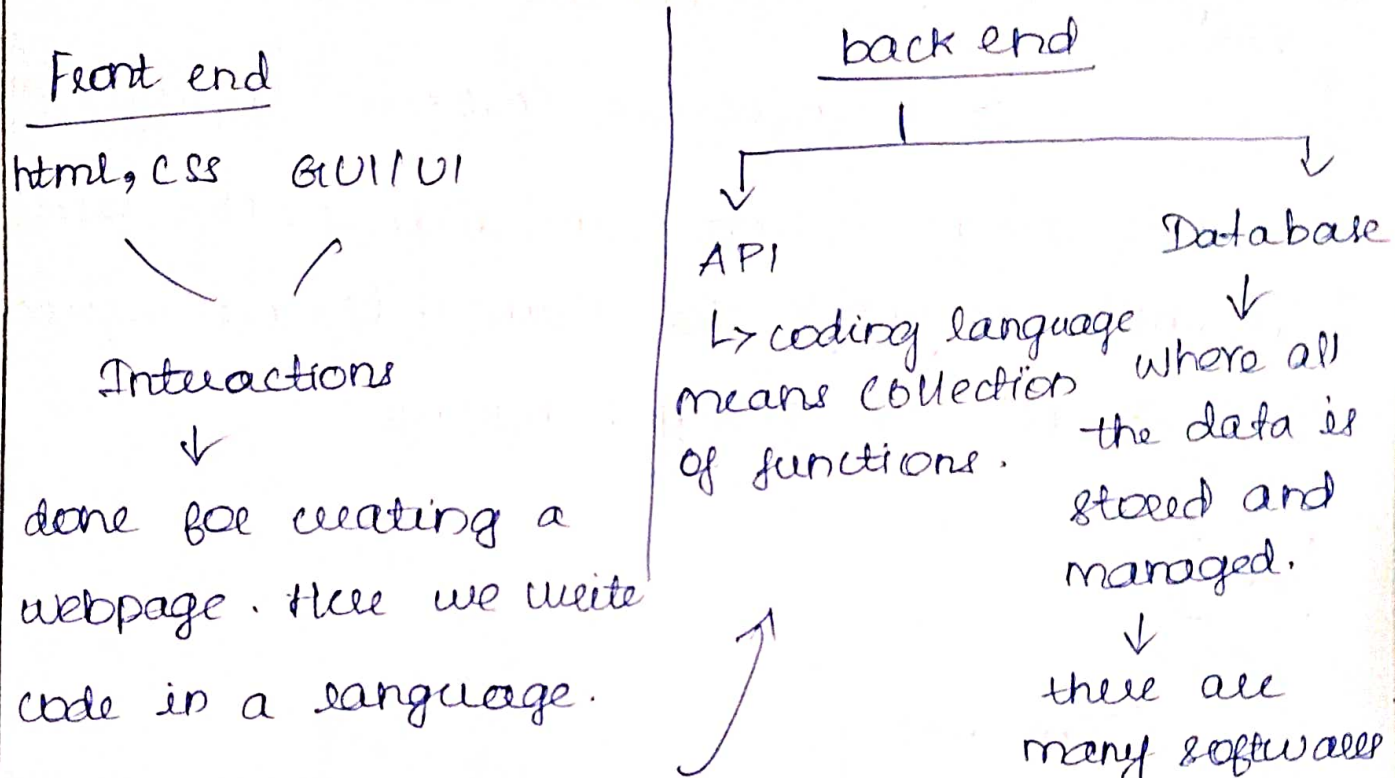 Front end
html, CSS GUI/UI
Interactions
done for creating a
webpage. Here we write
code in a language.
back end
API
↳ coding language
means collection
of functions.
Database
where all
the data is
stored and
managed.
there are
many softwares